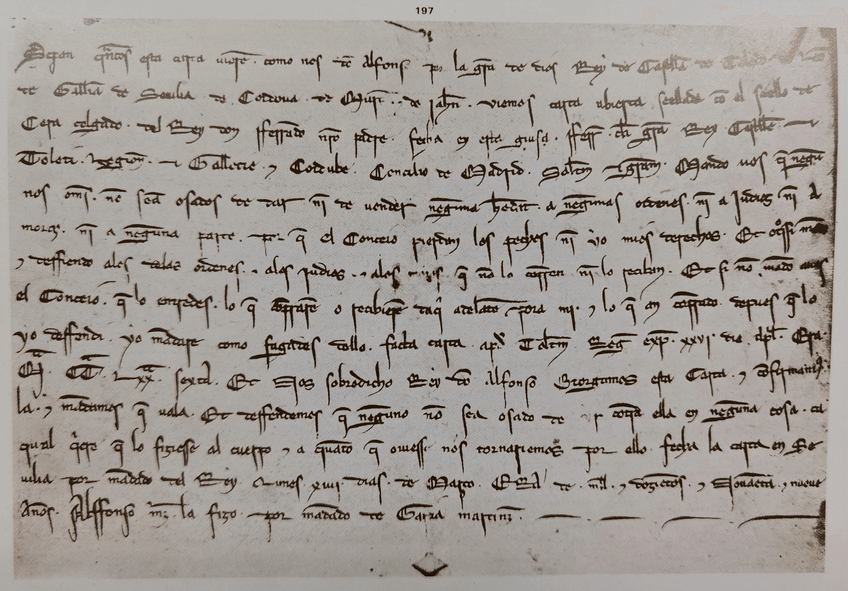 197
Sepan quantos esta carta uieren como nos don Alfonso por la gracia de dios Rey de Castiella de Toledo de Leon
de Gallizia de Seuilla de Cordoua de Murcia de Jahen viemos carta abierta seellada con el seello de
Cera colgado del Rey don fferrando nuestro padre fecha en esta guisa fferrandus dei gracia Rex Castelle
Toleti Legionis Gallecie Cordube Concilio de Madrid Salutem graciam Mando uos que neguno
nos omne non sean osados de dar ni de uender neguna heredit a negunas ordenes ni a Judios ni a
moros ni a neguna parte por que el Concejo pierdan los pechos ni yo mios derechos Et otrossi mando
deffiendo a los ordenes a los judios a los moros que non lo compren ni lo reciban Et si non mando a uos
el Concejo que lo entredes lo que comprare o recibiere daqui adelante pora mi lo que an comprado depues que lo
yo deffendi yo mandare como fagades dello facta carta apud Toletum Reg exp xxvi die aprl Era
M CC Lxx sexta Et Nos sobredicho Rey don Alfonso Otorgamos esta Carta confirmamos
la mandamos que uala Et deffendemos que neguno non sea osado de contra ella en neguna cosa ca
qual quier que lo fiziesse al cuerpo a quanto que ouiesse nos tornariemos por ello fecha la carta en Se
uilla por mandado del Rey Lunes xviii dias de Março ERA de mill dozientos Nouaenta nueue
Años Alffonso la fizo por mandado de Garcia martinez